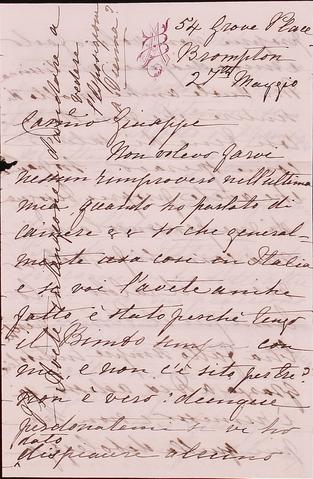 54 Grove Place
Brompton
27th Maggio
Caro Giuseppe
Non volevo farvi
nessun rimprovero nell'ultima
mia quando ho parlato di
camere so che general-
mente usa così in Italia
e se voi l'avete anche
fatto è stato perché tengo
il Bimbo sempre con
me e non c'è sito per tre?
non è vero? dunque
perdonatemi se vi ho
dato
dispiacere alcuno
a
vedere
l'Esposizione
a Vienna?